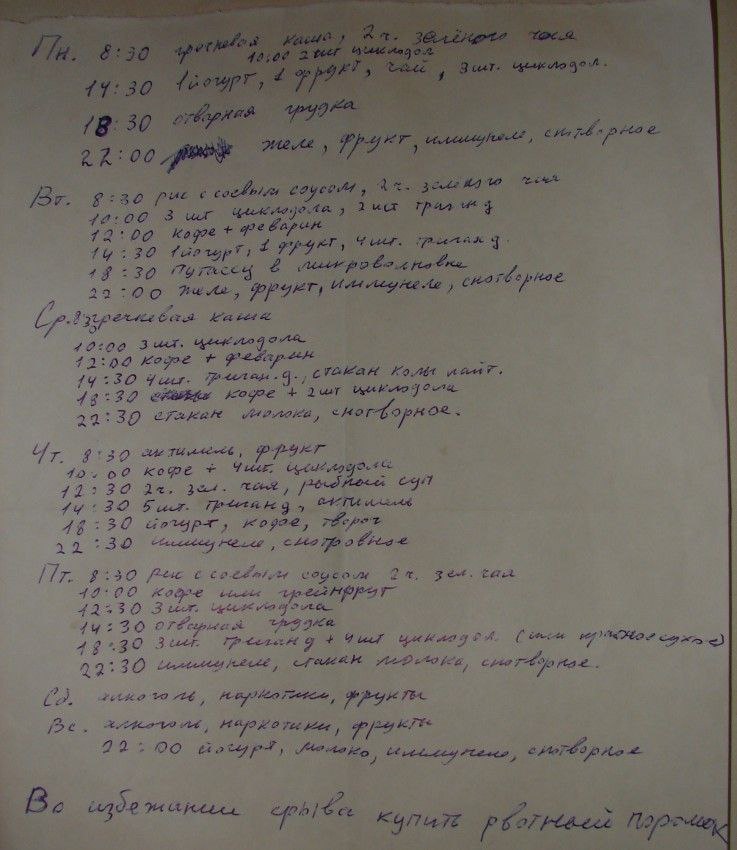 Пн. 8:30 гречневая каша, 2 ч. зелёного чая
10:00 2 шт циклодол
14:30 1 йогурт, 1 фрукт, чай, 3 шт. циклодол.
18:30 отварная грудка
22:00 желе, фрукт, иммунеле, снотворное
Вт. 8:30 рис с соевым соусом, 2 ч. зеленого чая
10:00 3 шт циклодола, 2 шт триган д
12:00 кофе + феварин
14:30 1 йогурт, 1 фрукт, 4 шт. триган д.
18:30 путассу в микроволновке
22:00 желе, фрукт, иммунеле, снотворное
Ср. 8:30 гречневая каша
10:00 3 шт. циклодола
12:00 кофе + феварин
14:30 4 шт. триган.д., стакан колы лайт.
18:30 кофе + 2 шт циклодола
22:30 стакан молока, снотворное.
Чт. 8:30 актимель, фрукт
10:00 кофе + 4 шт. циклодола
12:30 2 ч. зел. чая, рыбный суп
14:30 5 шт. триган д, актимель
18:30 йогурт, кофе, творог
22:30 иммунеле, снотровное
Пт. 8:30 рис с соевым соусом 2 ч. зел. чая
10:00 кофе или грейпфрут
12:30 3 шт. циклодола
14:30 отварная грудка
18:30 3 шт. триган д + 4 шт циклодол. (или красное сухое)
22:30 иммунеле, стакан молока, снотворное.
Сб. алкоголь, наркотики, фрукты
Вс. алкоголь, наркотики, фрукты
22:00 йогурт, молоко, иммунеле, снотворное
Во избежании срыва купить рвотный порошок